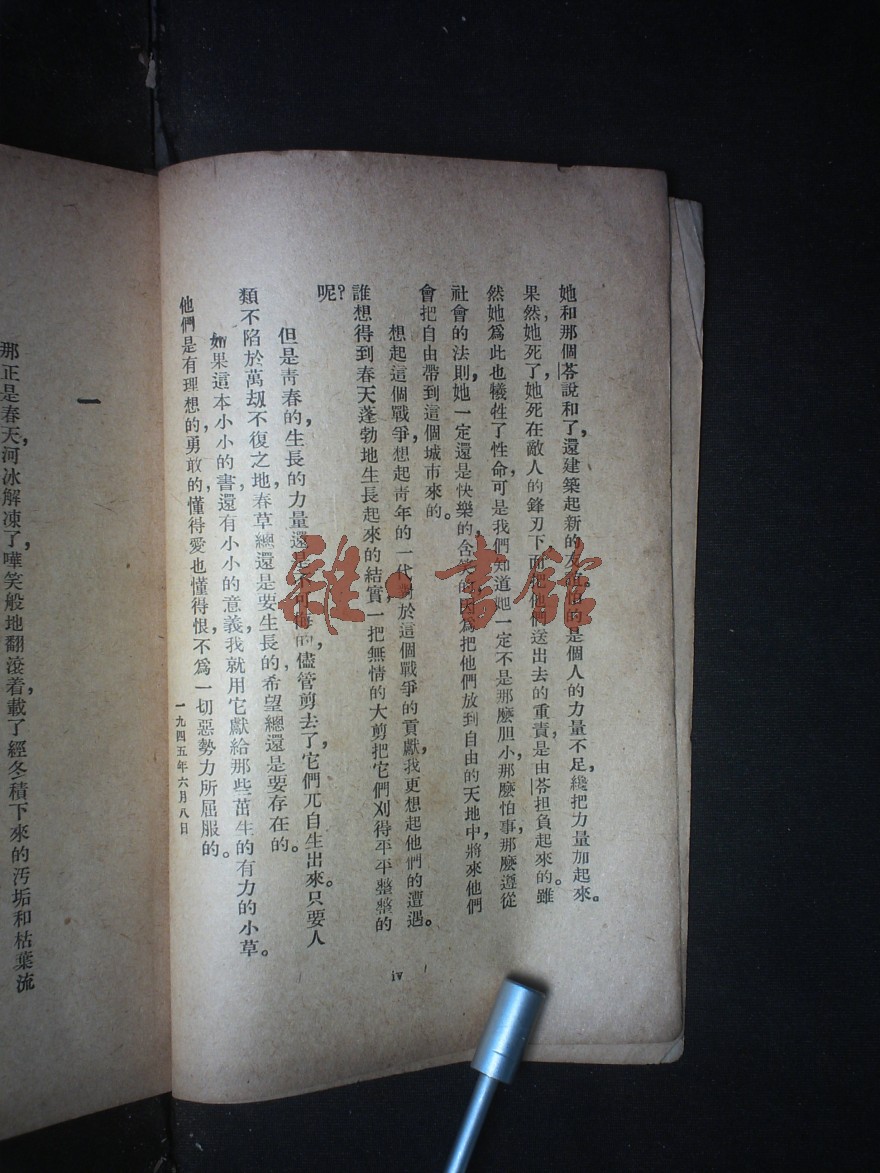 她和那個苓說和了,還建築起新的友誼。怕的是個人的力量不足,纔把力量加起來。
果然,她死了,她死在敵人的鋒刃下,而把他們送出去的重責,是由苓担負起來的。雖
然她爲此也犧牲了性命,可是我們知道她一定不是那麽胆小,那麽怕事,那麽遵從
社會的法則,她一定還是快樂的,含笑的,因爲把他們放到自由的天地中,將來他們
會把自由帶到這個城市來的。
想起這個戰爭,想起靑年的一代對於這個戰爭的貢獻,我更想起他們的遭遇。
誰想得到春天蓬勃地生長起來的結實,一把無情的大剪把它們刈得平平整整的
呢?
但是靑春的,生長的力量還是不可侮的,儘管剪去了,它們兀自生出來。只要人
類不陷於萬刼不復之地,春草總還是要生長的,希望總還是要存在的。
如果這本小小的書,還有小小的意義,我就用它獻給那些茁生的有力的小草。
他們是有理想的,勇敢的,懂得愛也懂得恨,不爲一切惡勢力所屈服的。
一九四五年六月八日
iv
一
那正是春天,河冰解凍了,嘩笑般地翻滾着,載了經冬積下來的汚垢和枯葉流
雜·書館